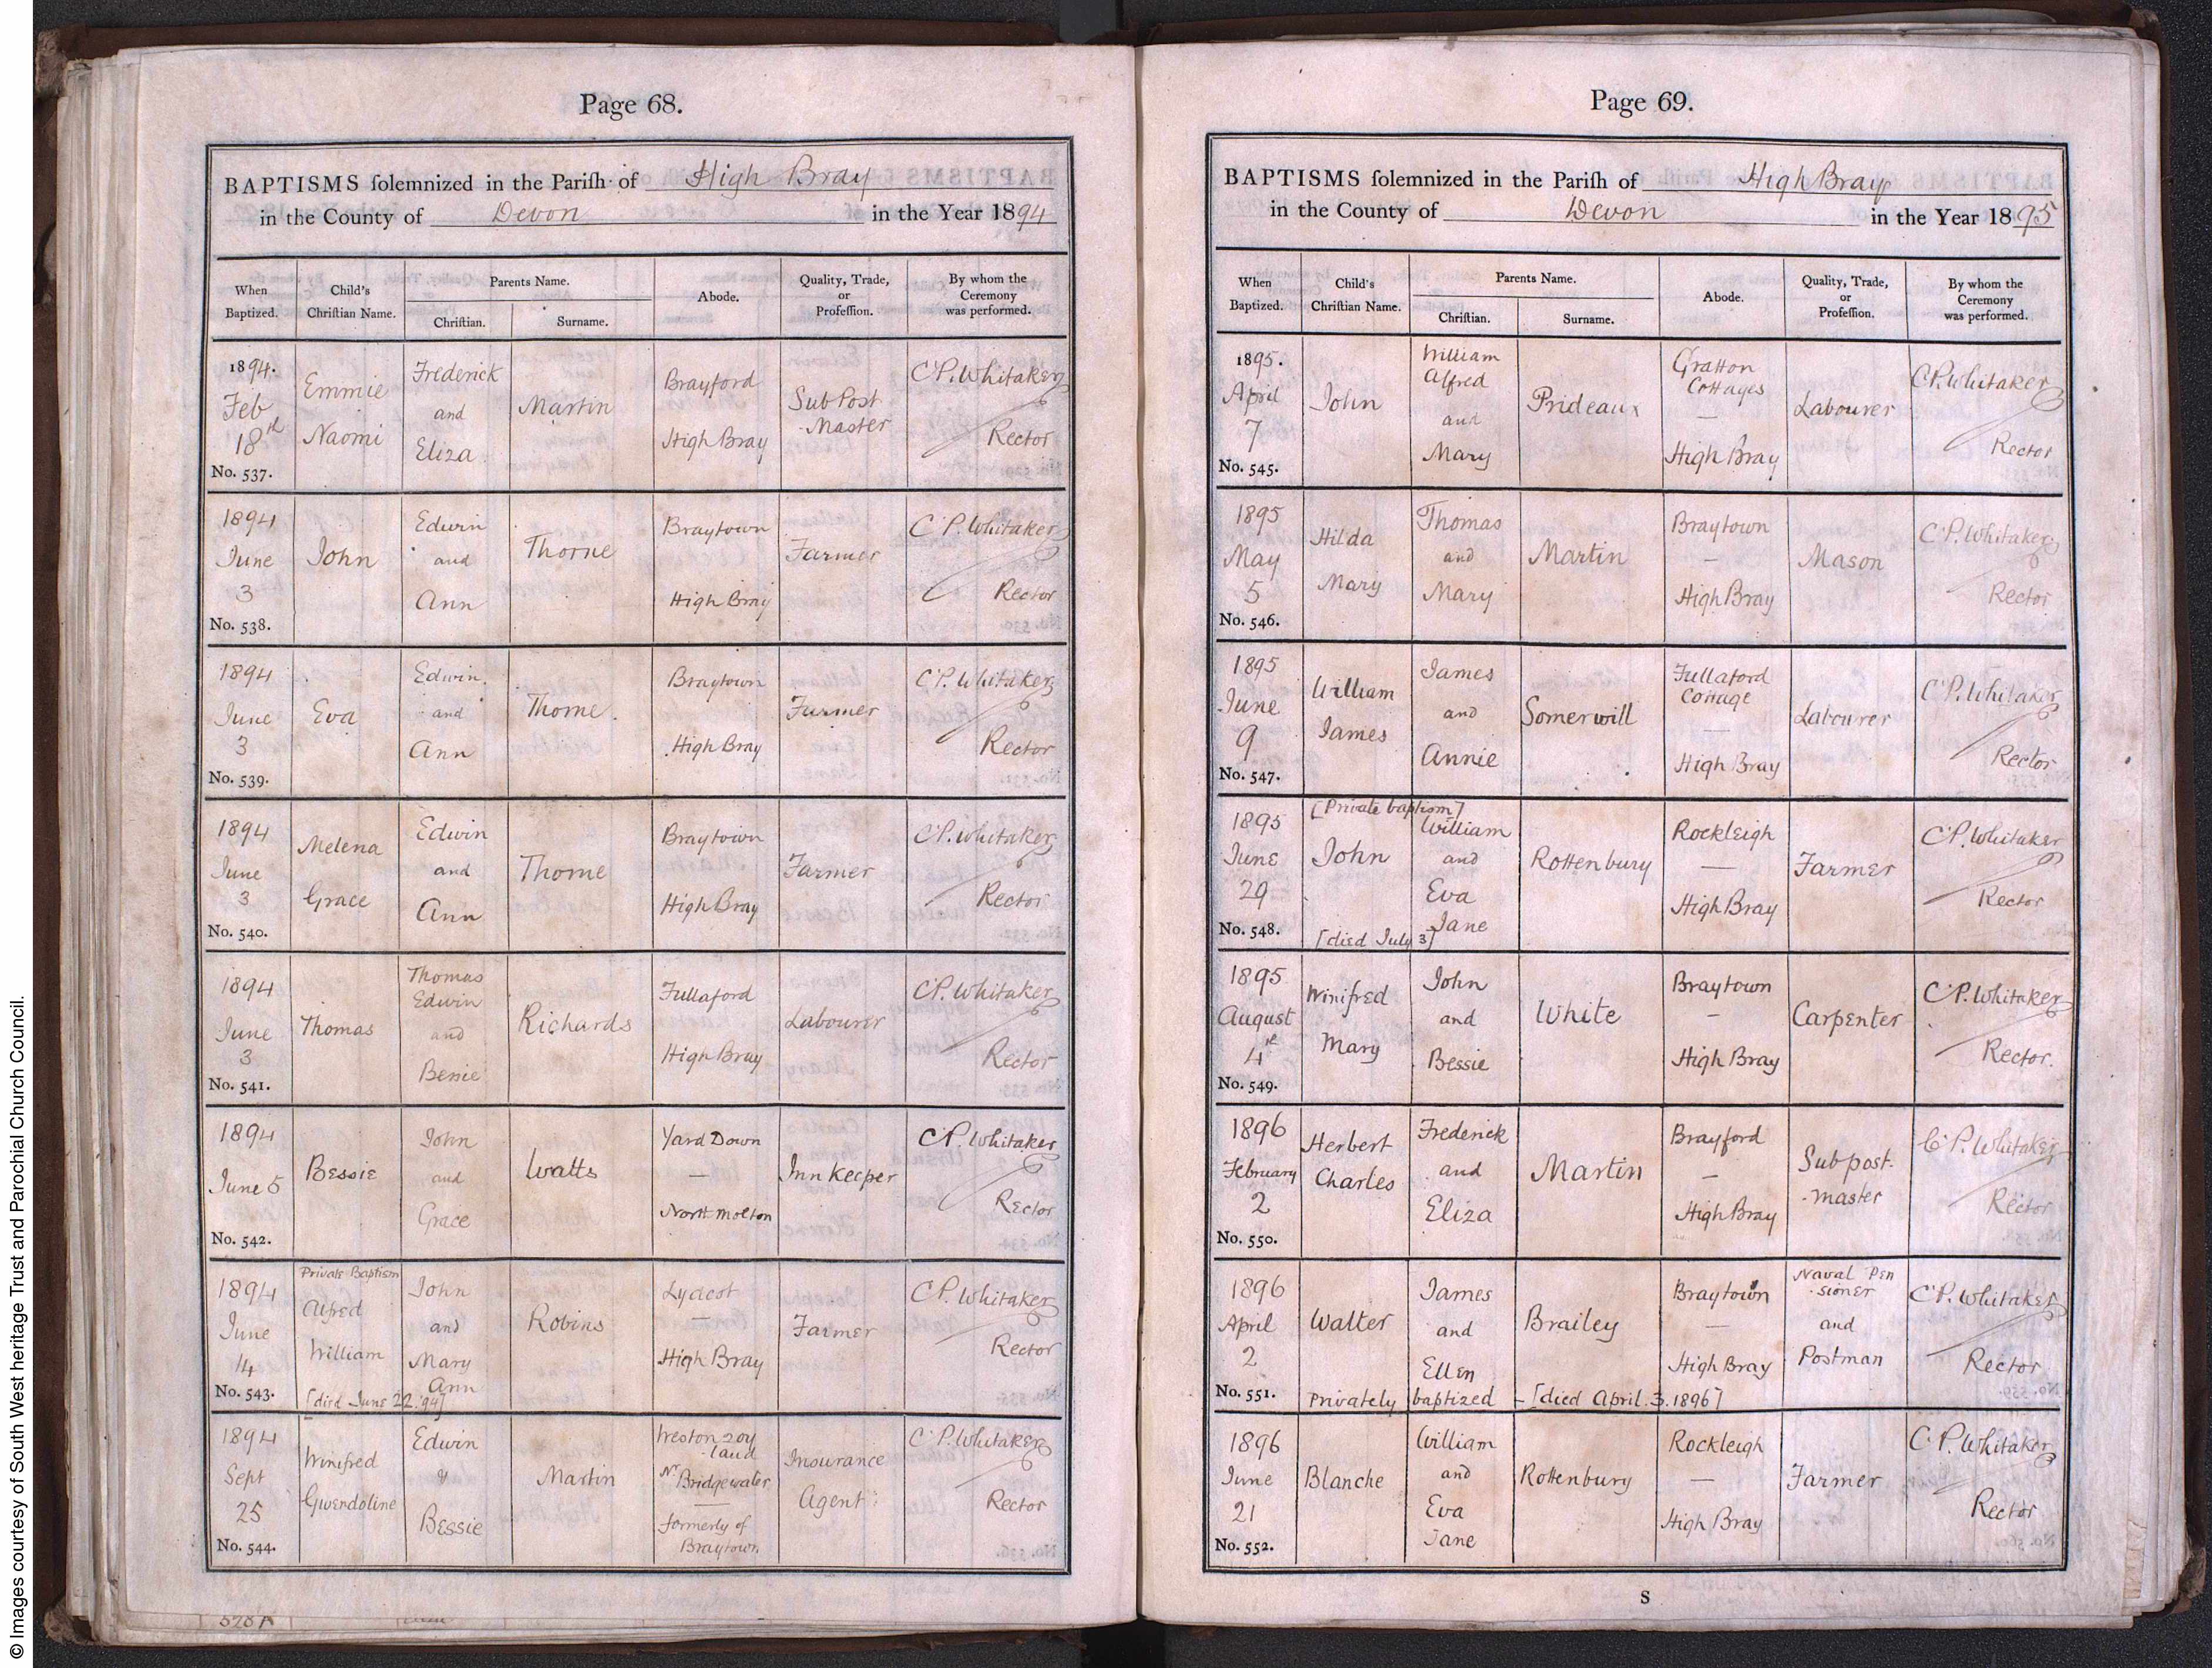 © Images courtesy of South West heritage Trust and Parochial Church Council.
Page 68.
BAPTISMS ſolemnized in the Pariſh of High Bray
in the County of Devon in the Year 1894
When Baptized. Child's Chriſtian Name. Parents Name. Chriſtian. Surname. Abode. Quality, Trade, or Profeſſion. By whom the Ceremony was performed.
1894. Feb 18th No. 537. Emmie Naomi Frederick and Eliza Martin Brayford High Bray Sub Post Master C.P. Whitaker Rector
1894 June 3 No. 538. John Edwin and Ann Thorne Braytown High Bray Farmer C.P. Whitaker Rector
1894 June 3 No. 539. Eva Edwin and Ann Thorne. Braytown High Bray Farmer C.P. Whitaker Rector
1894 June 3 No. 540. Melena Grace Edwin and Ann Thorne Braytown High Bray Farmer C.P. Whitaker Rector
1894 June 3 No. 541. Thomas Thomas Edwin and Bessie Richards Fullaford High Bray Labourer C.P. Whitaker Rector
1894 June 5 No. 542. Bessie John and Grace Watts Yard Down — North Molton Inn Keeper C.P. Whitaker Rector
1894 June 14 No. 543. Private Baptism Alfred William [died June 22. 94] John and Mary Ann Robins Lydcot — High Bray Farmer C.P. Whitaker Rector
1894 Sept 25 No. 544. Winifred Gwendoline Edwin & Bessie Martin Weston Zoy land Nr Bridgewater — formerly of Braytown Insurance Agent C.P. Whitaker Rector
Page 69.
BAPTISMS ſolemnized in the Pariſh of High Bray
in the County of Devon in the Year 1895
When Baptized. Child's Chriſtian Name. Parents Name. Chriſtian. Surname. Abode. Quality, Trade, or Profeſſion. By whom the Ceremony was performed.
1895. April 7 No. 545. John William Alfred and Mary Prideaux Gratton Cottages — High Bray Labourer C.P. Whitaker Rector
1895 May 5 No. 546. Hilda Mary Thomas and Mary Martin Braytown — High Bray Mason C.P. Whitaker Rector
1895 June 9 No. 547. William James James and Annie Somerwill Fullaford Cottage — High Bray Labourer C.P. Whitaker Rector
1895 June 29 No. 548. [Private baptism] John [died July 3] William and Eva Jane Rottenbury Rockleigh — High Bray Farmer C.P. Whitaker Rector
1895 August 4th No. 549. Winifred Mary John and Bessie White Braytown — High Bray Carpenter C.P. Whitaker Rector.
1896 February 2 No. 550. Herbert Charles Frederick and Eliza Martin Brayford — High Bray Subpost-master C.P. Whitaker Rector
1896 April 2 No. 551. Walter James and Ellen Brailey Braytown — High Bray Naval Pensioner and Postman C.P. Whitaker Rector
Privately baptized — [died April. 3. 1896]
1896 June 21 No. 552. Blanche William and Eva Jane Rottenbury Rockleigh — High Bray Farmer C.P. Whitaker Rector
S